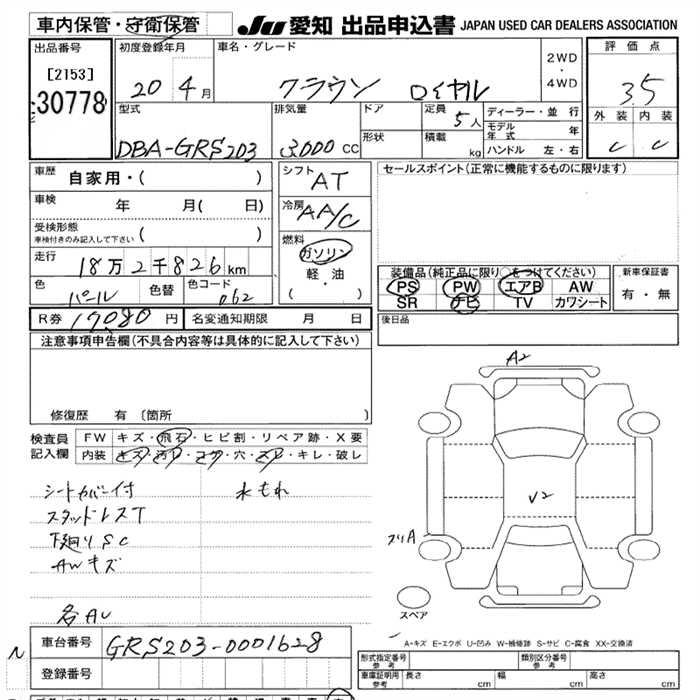 車内保管・守衛保管
JU 愛知 出品申込書 JAPAN USED CAR DEALERS ASSOCIATION
出品番号
[2153]
30778
初度登録年月
20 4月
車名・グレード
クラウン ロイヤル
2WD
・
4WD
評価点
3.5
外装 内装
C C
型式
DBA-GRS203
排気量
3000 CC
ドア
形状
定員
5人
積載
kg
ディーラー・並行
モデル年式 年
ハンドル 左・右
車歴
自家用・( )
車検
年 月( 日)
受検形態
車検付きのみ記入して下さい ( )
走行
18万2千826km
色
パール
色替
色コード
062
シフト
AT
冷房
AA/C
燃料
ガソリン
軽・油
( ・ )
セールスポイント(正常に機能するものに限ります)
装備品(純正品に限り○をつけてください)
PS PW エアB AW
SR ナビ TV カワシート
新車保証書
有・無
後日品
R券 17080円
名変通知期限 月 日
注意事項申告欄(不具合内容等は具体的に記入して下さい)
修復歴 有 〔箇所 〕
検査員記入欄
FW キズ・飛石・ヒビ割・リペア跡・X要
内装 キズ・汚レ・コゲ・穴・スレ・キレ・破レ
シートカバー付 水もれ
スタッドレスT
下廻りSC
AWキズ
各AU
A2
V2
スリA
スペア
A-キズ E-エクボ U-凹み W-補修跡 S-サビ C-腐食 XX-交換済
N
車台番号
GRS203-0001628
登録番号
形式指定番号
参考
類別区分番号
参考
車庫証明用
参考
長さ cm 幅 cm 高さ cm